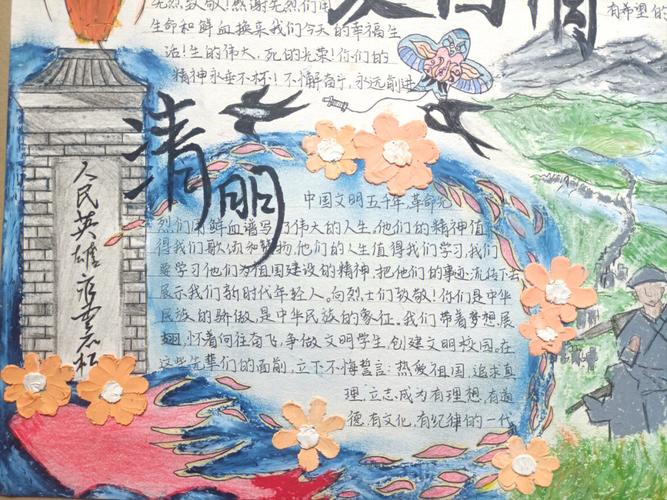 先烈致敬!感谢先烈们用
生命和鲜血换来我们今天的幸福生
活!生的伟大,死的光荣!你们的
精神永垂不朽!不懈奋斗,永远前进
有希望的
清明
人民英雄永垂不朽
中国文明五千年,革命先
烈们用鲜血谱写了伟大的人生,他们的精神值
得我们歌颂和赞扬,他们的人生值得我们学习,我们
要学习他们为祖国建设的精神,把他们的事迹流传下去
展示我们新时代年轻人。向烈士们致敬!你们是中华
民族的骄傲,是中华民族的象征。我们带着梦想,展
翅,怀着向往奋飞,争做文明学生,创建文明校园。在
这些先辈们的面前,立下不悔誓言:热爱祖国,追求真
理,立志成为有理想,有道
德,有文化,有纪律的一代